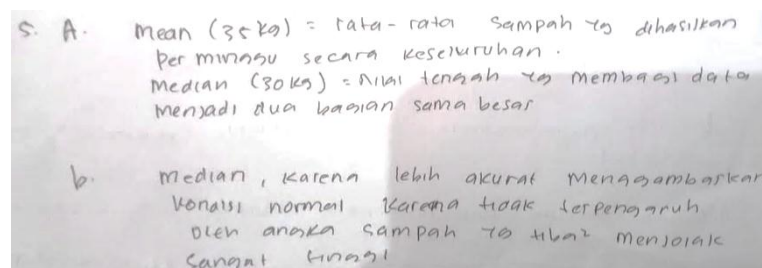 5. A. Mean (35 kg) = rata-rata sampah yg dihasilkan
per minggu secara keseluruhan.
Median (30 kg) = nilai tengah yg membagi data
menjadi dua bagian sama besar
b. Median, karena lebih akurat menggambarkan
kondisi normal karena tidak terpengaruh
oleh angka sampah yg tiba² menjolak
sangat tinggi